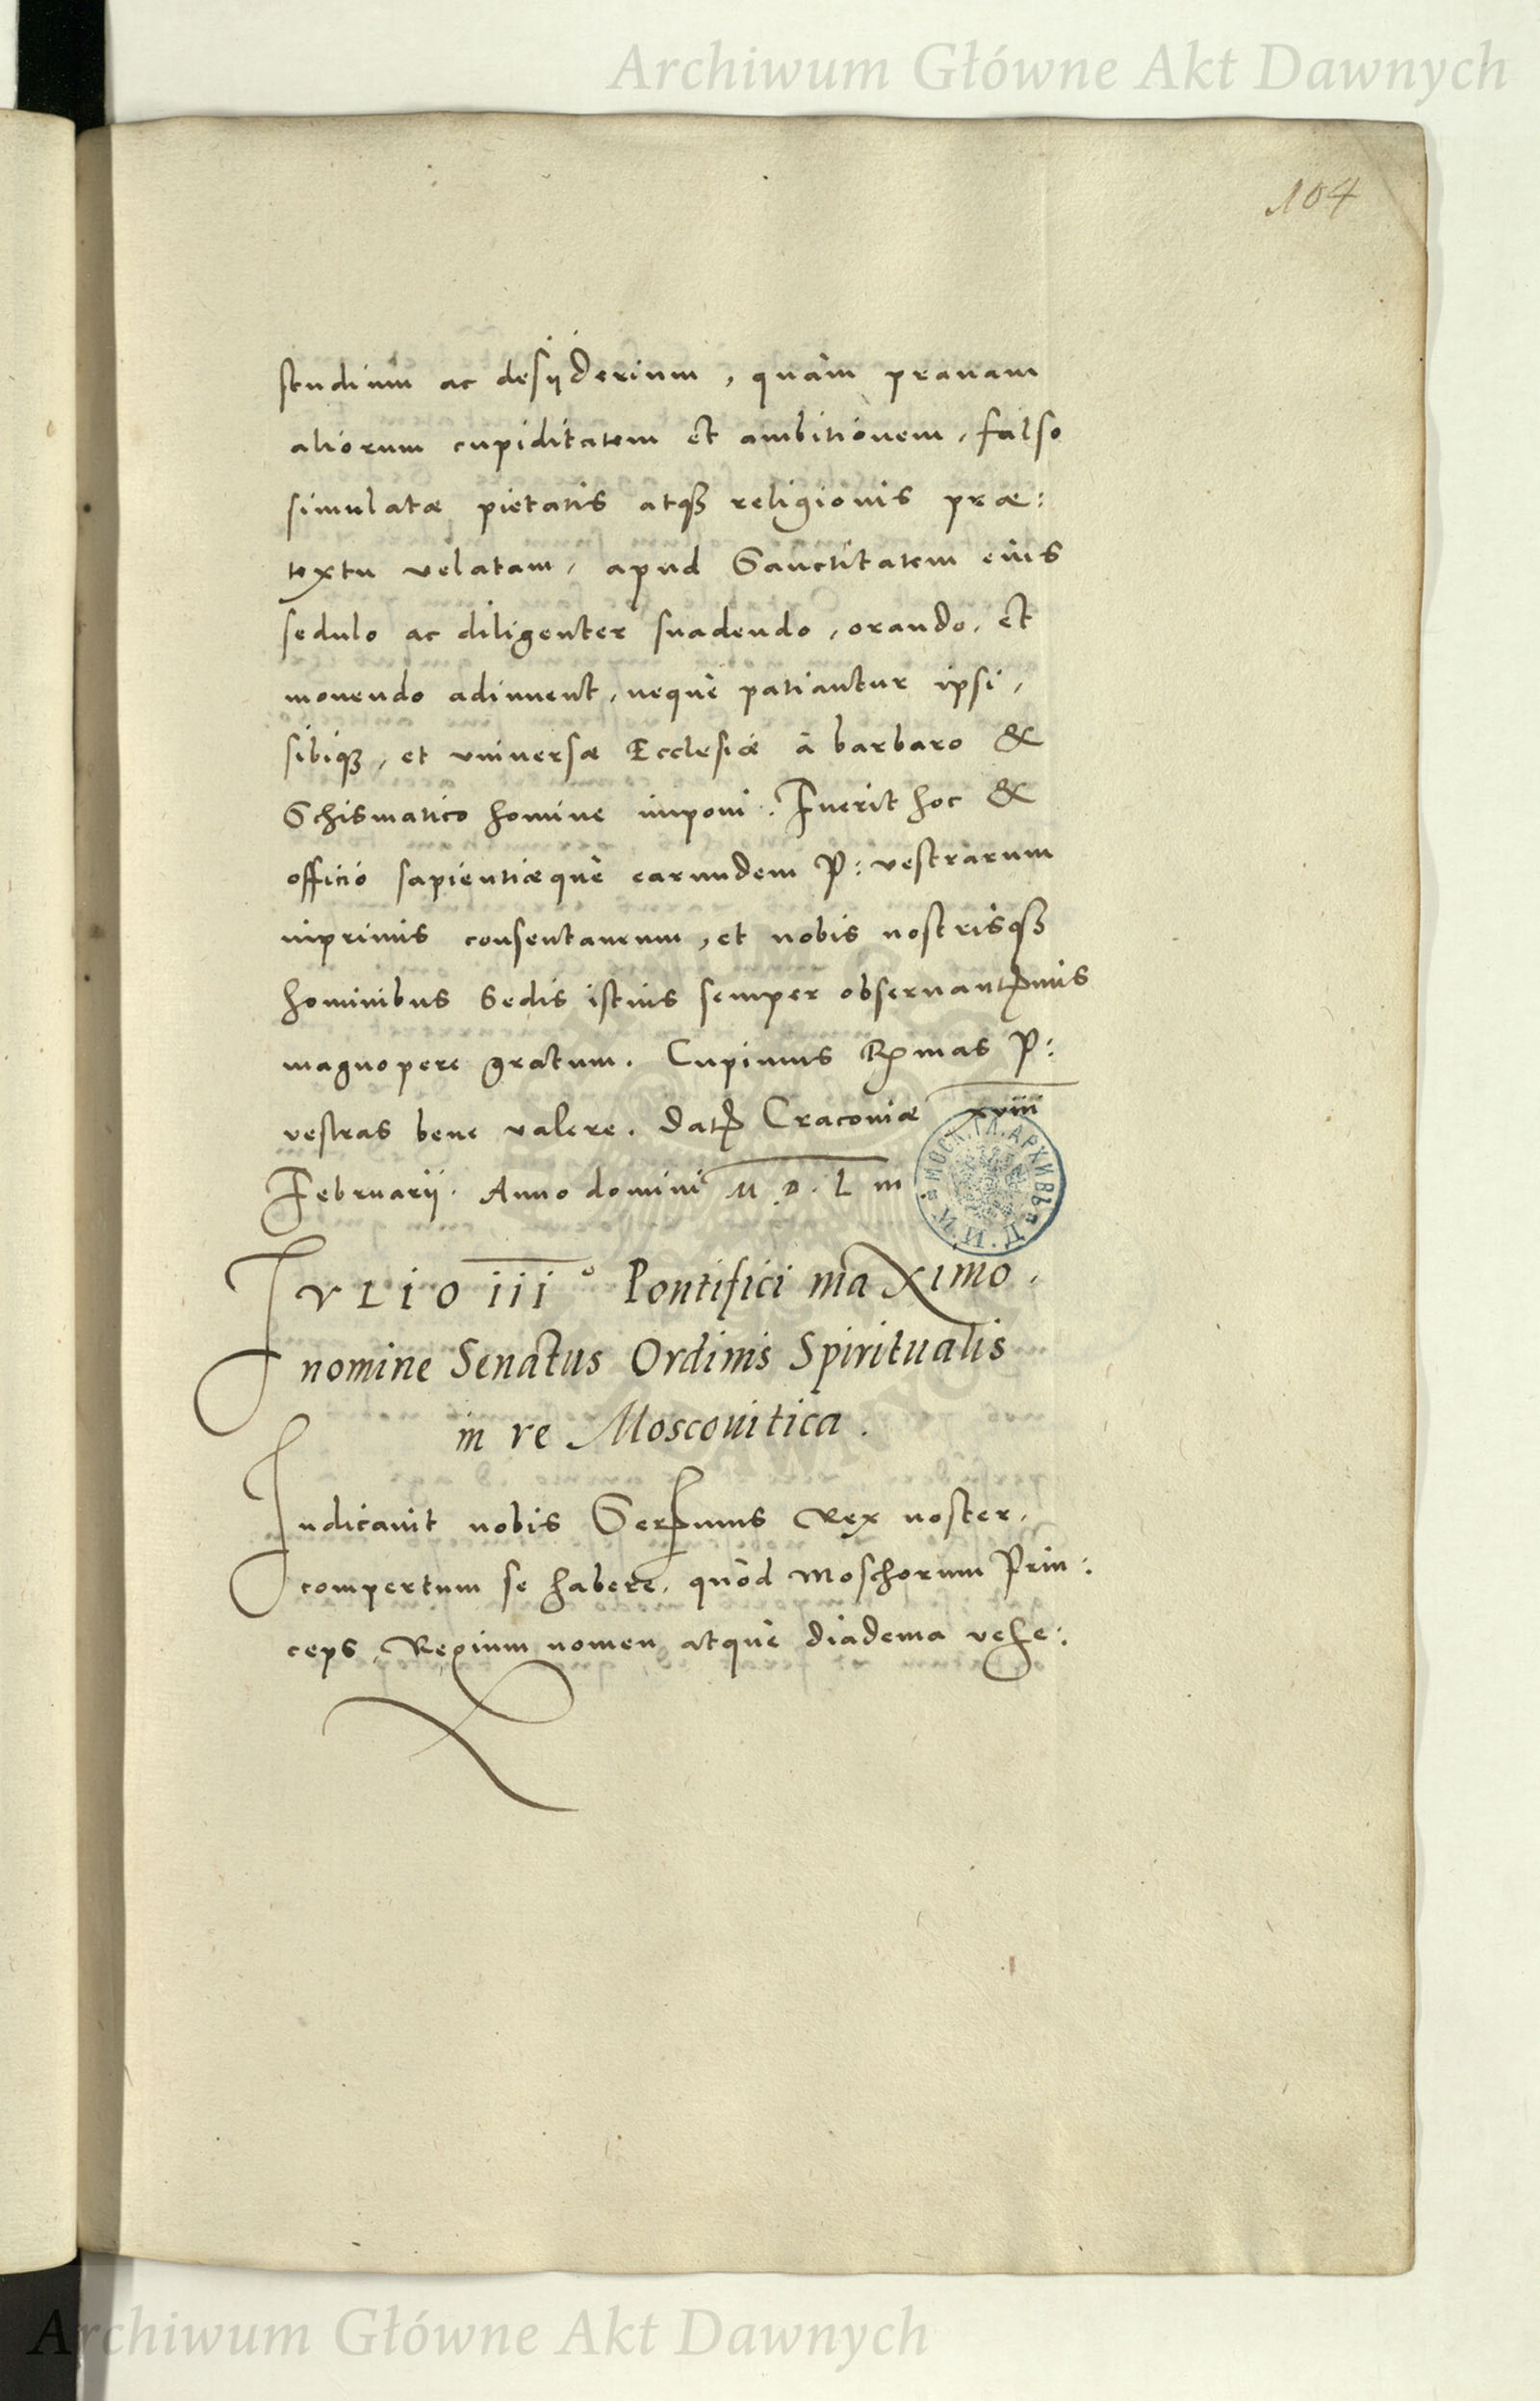 Archiwum Główne Akt Dawnych
104
studium ac desyderium, quàm prauam
aliorum cupiditatem et ambitionem, falso
simulatæ pietatis atqꝫ religionis præ:
textu velatam, apud Sanctitatem eius
sedulo ac diligenter suadendo, orando, et
monendo adiuuent, nequè patiantur ipsi,
sibiqꝫ, et vniuersæ Ecclesiæ à barbaro &
Schismatico homine imponi. Fuerit hoc &
officio sapientiæquè earundem P: vestrarum
inprimis consentaneum, et nobis nostrisqꝫ
hominibus Sedis istius semper obseruantꝭmis
magnopere gratum. Cupimus Rꝭmas P:
vestras bene valere. Datꝭ Cracouiæ xviii
Februarij. Anno domini M.D.L III
МОСК.ГЛ.АРХИВЪ М.И.Д.
IVLIO iii° Pontifici maximo,
nomine Senatus Ordinis Spiritualis
in re Moscouitica.
Indicauit nobis Serꝭmus Rex noster,
compertum se habere, quòd Moschorum Prin:
ceps, Regium nomen atquè diadema vehe:
Archiwum Główne Akt Dawnych